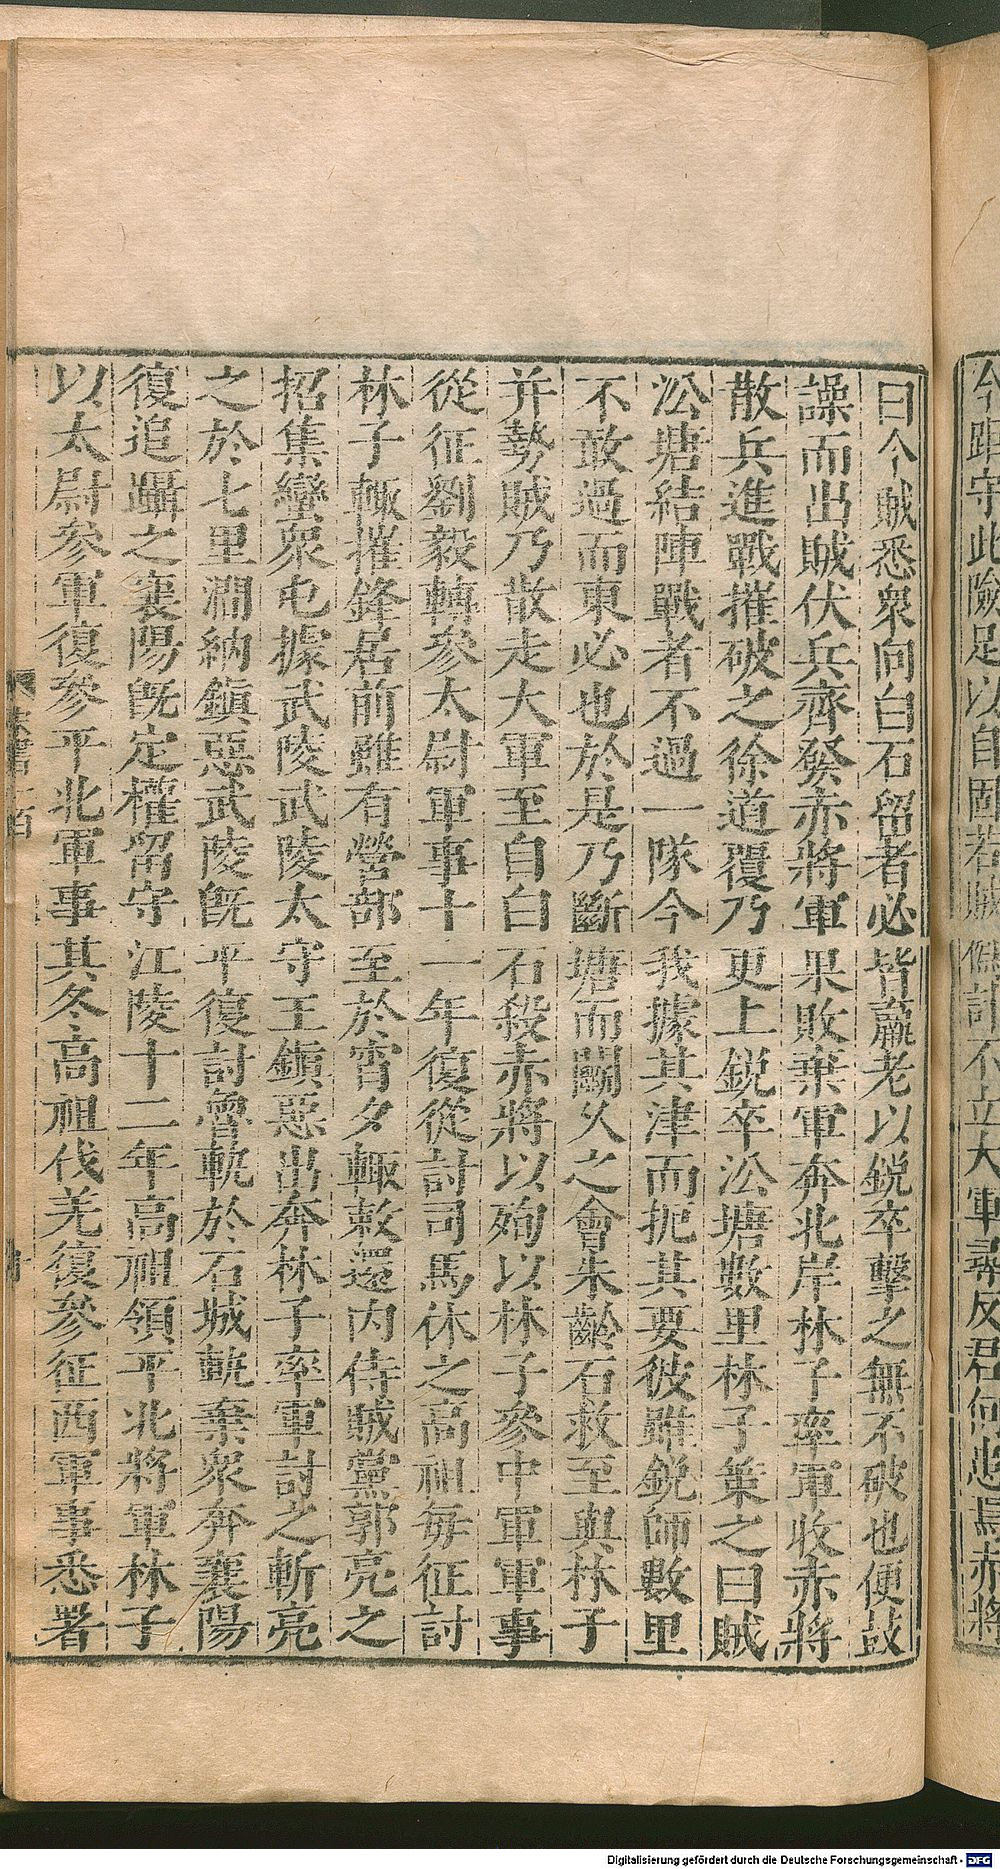 今距守此險足以自固若賊偽計不立大軍尋反君何患焉赤將
曰今賊悉衆向白石留者必皆羸老以鋭卒擊之無不破也便鼓
譟而出賊伏兵齊發赤將軍果敗棄軍奔北岸林子率軍收赤將
散兵進戰摧破之徐道覆乃更上鋭卒㳂塘數里林子策之曰賊
㳂塘結陣戰者不過一隊今我據其津而扼其要彼雖鋭師數里
不敢過而東必也於是乃斷塘而鬭久之會朱齡石救至與林子
并勢賊乃散走大軍至自白石殺赤將以殉以林子參中軍軍事
從征劉毅轉參太尉軍事十一年復從討司馬休之高祖毎征討
林子輒摧鋒居前雖有營部至於宵夕輒敕還内侍賊黨郭亮之
招集蠻衆屯據武陵武陵太守王鎭惡出奔林子率軍討之斬亮
之於七里澗納鎭惡武陵旣平復討魯軌於石城軌棄衆奔襄陽
復追躡之襄陽旣定權留守江陵十二年高祖領平北將軍林子
以太尉參軍復參平北軍事其冬高祖伐羌復參征西軍事悉署
Digitalisierung gefördert durch die Deutsche Forschungsgemeinschaft - DFG